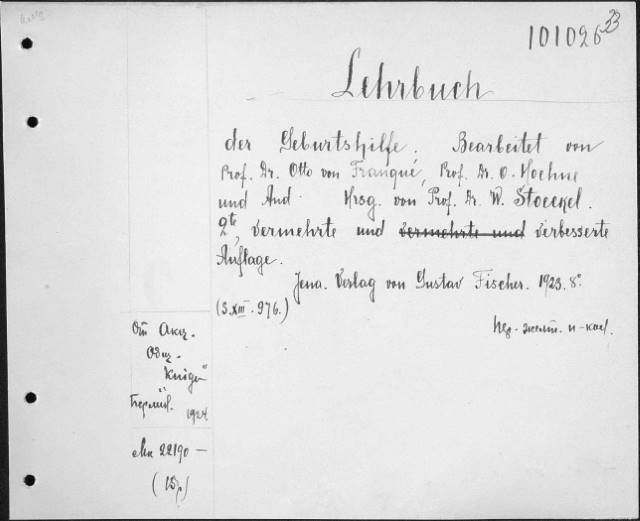 101026
33
Lehrbuch
der Geburtshilfe. Bearbeitet von
Prof. Dr. Otto von Franqué, Prof. Dr. O. Hoehne
und And. Hrsg. von Prof. Dr. W. Stoeckel.
2te, vermehrte und vermehrte und verbesserte
Auflage.
Jena. Verlag von Gustav Fischer. 1923. 8°
(S. XIII. 976.)
От Акц.
Общ.
"Книга"
Берлин. 1924